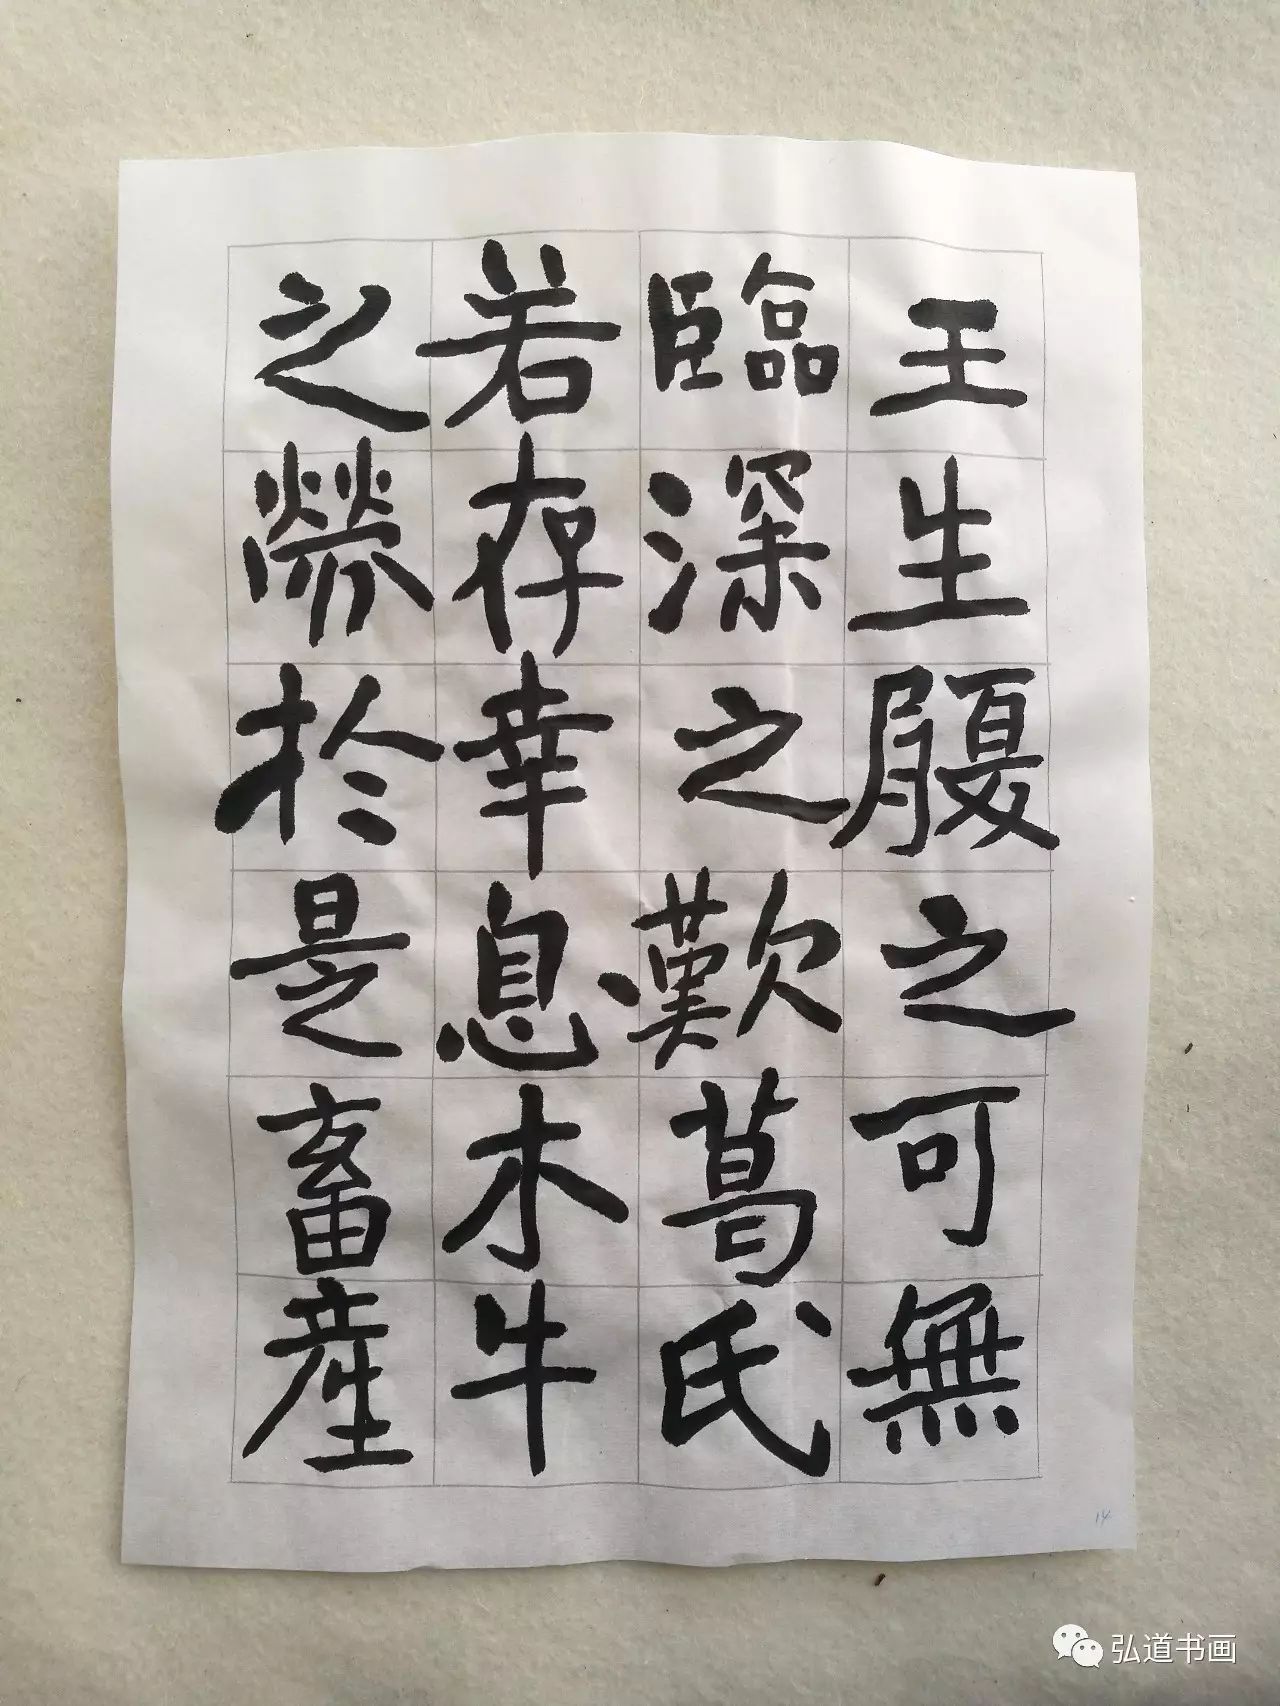 王生履之可無
臨深之歎葛氏
若存幸息木牛
之勞於是畜産
14
弘道书画